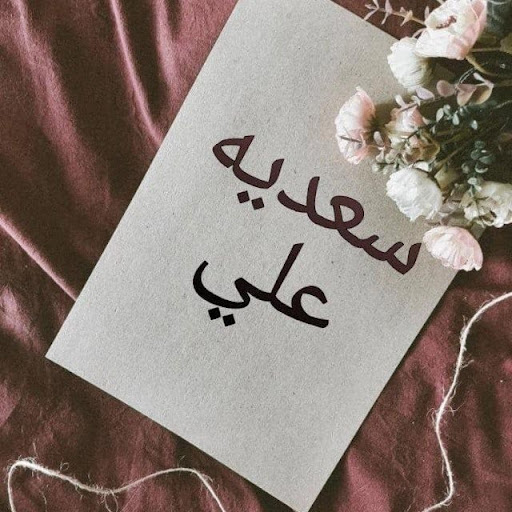 سعديه
علي